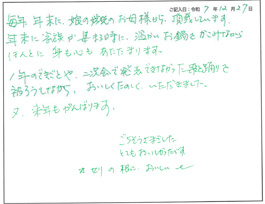 ご記入日:令和 7年 12月 27日
毎年 年末に、娘の嫁ぎ先のお母様から、頂戴しています。
年末に家族が集まる時に、温かいお鍋をかこみながら
ほんとに身も心もあたたまります。
1年のできごとや、
しながら、おいしくたのしく いただきました。
又、来年もがんばります。
ごちそうさまでした
とてもおいしかったです
セリの根に、おいしい